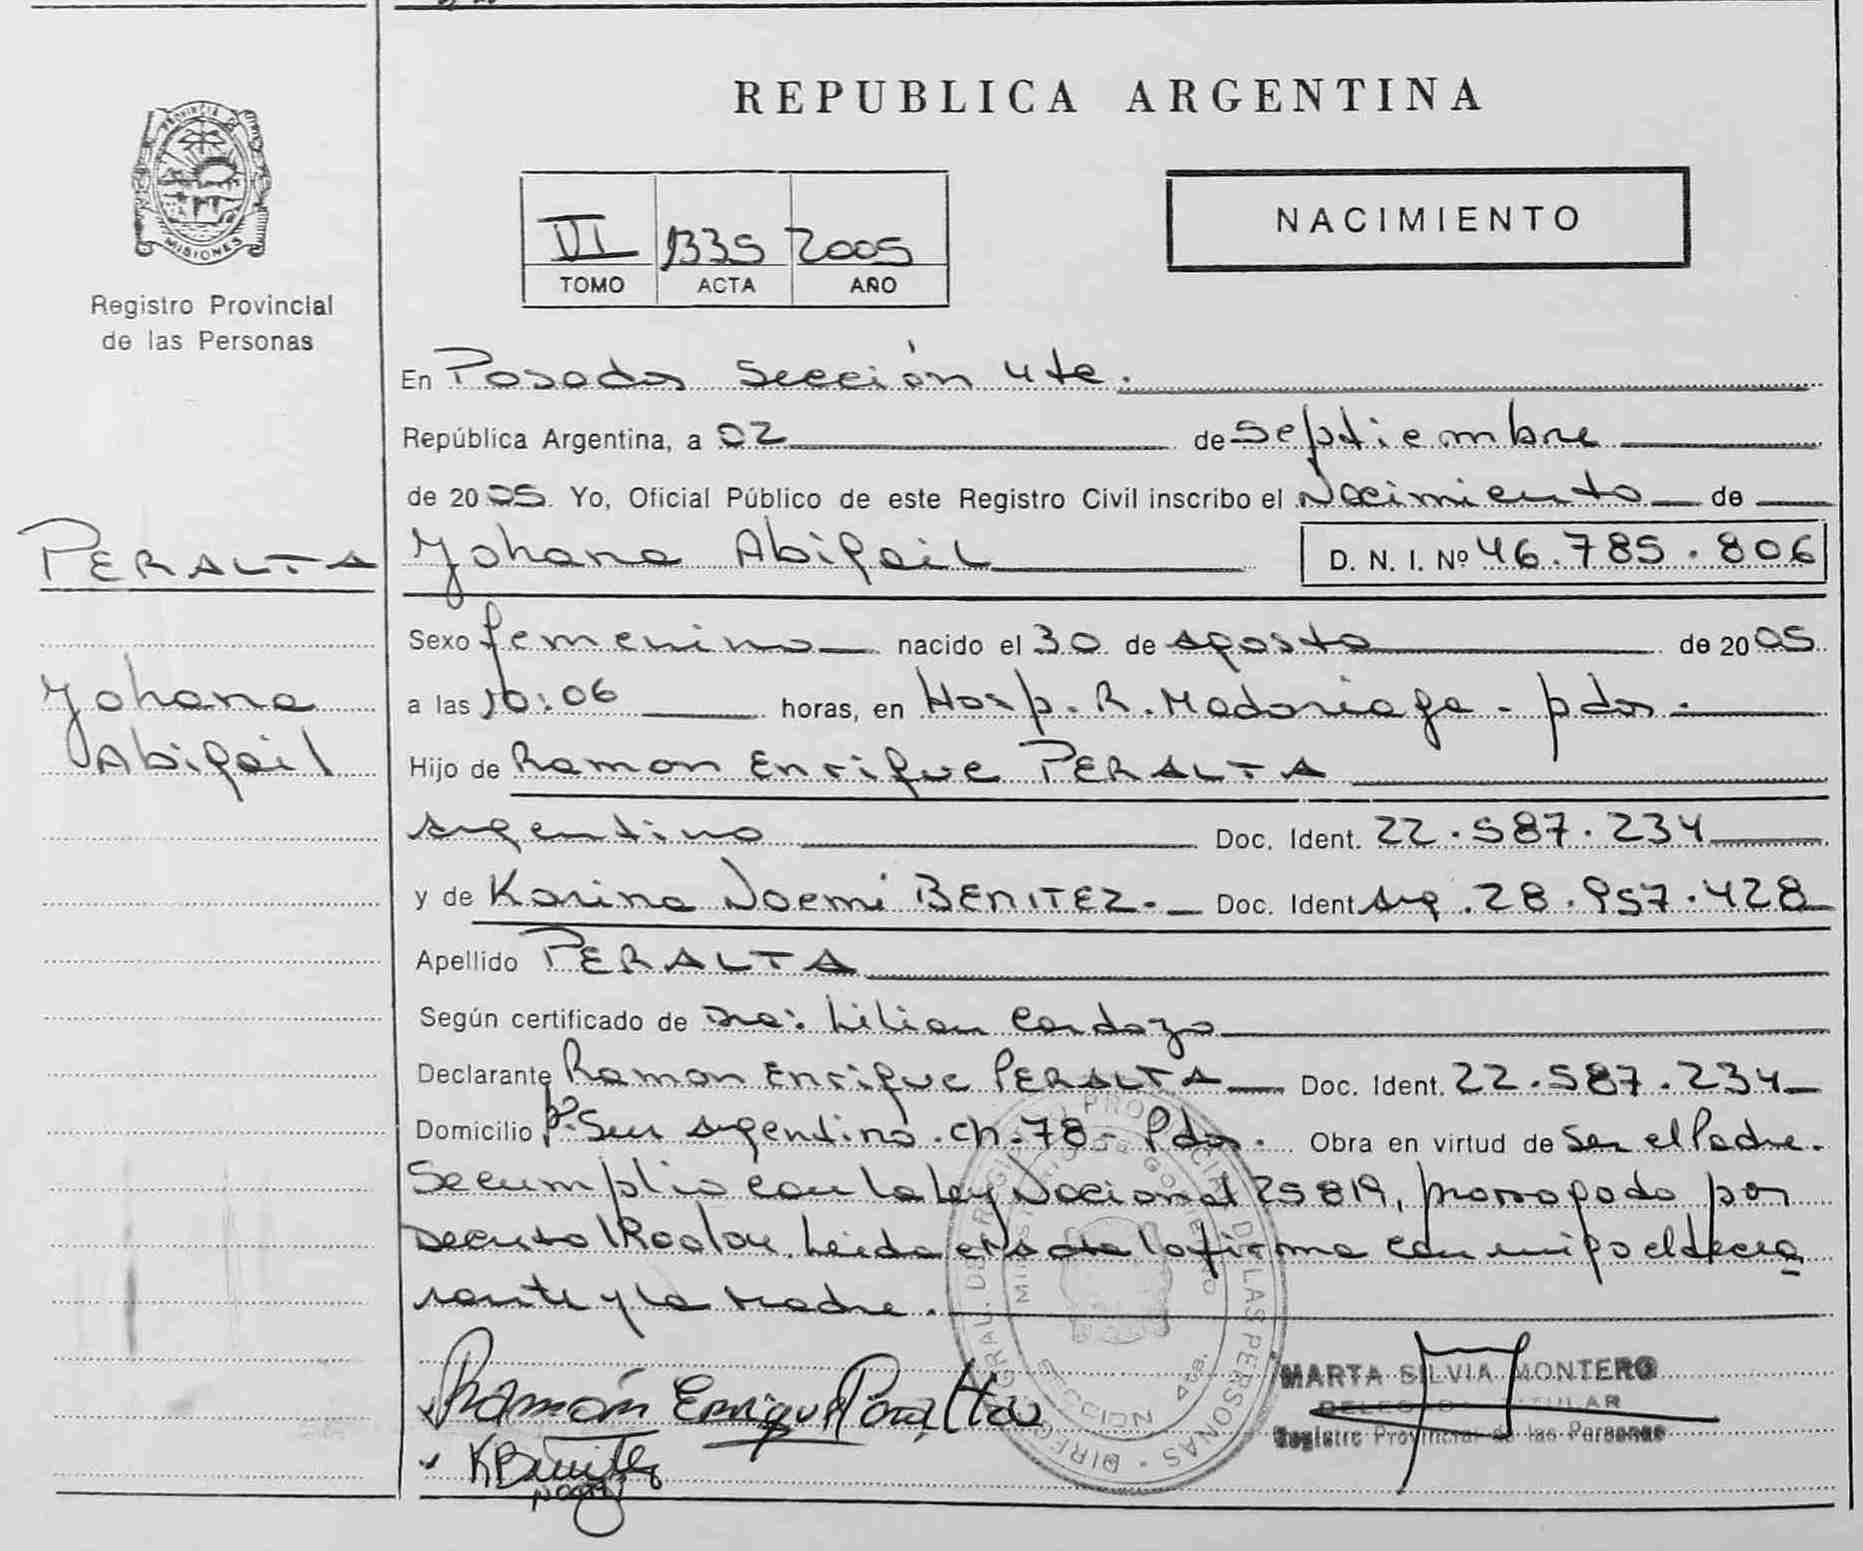 PROVINCIA DE
MISIONES
Registro Provincial
de las Personas
PERALTA
Yohana
Abigail
REPUBLICA ARGENTINA
VI 1335 2005
TOMO ACTA AÑO
NACIMIENTO
En Posadas Sección 4ta.
República Argentina, a 02 de septiembre
de 2005. Yo, Oficial Público de este Registro Civil inscribo el Nacimiento de
Yohana Abigail D. N. I. Nº 46.785.806
Sexo femenino nacido el 30 de agosto de 2005
a las 10:06 horas, en Hosp. R. Madariaga - pdas.
Hijo de Ramon Enrique PERALTA
argentino Doc. Ident. 22.587.234
y de Karina Noemi BENITEZ.- Doc. Ident arg. 28.957.428
Apellido PERALTA
Según certificado de Dra: Lilian Cardozo
Declarante Ramon Enrique PERALTA Doc. Ident. 22.587.234
Domicilio Bº Sur argentino. ch. 78 - Pdas. Obra en virtud de Ser el Padre.
Se cumplio con la ley Nacional 25819, prorrogado por
Decreto Leida el acta la firma conmigo el decla
rante y la madre.
Ramón Enrique Peralta
K Benitez
Noemi
MARTA SILVIA MONTERO
DELEGADO TITULAR
Registro Provincial de las Personas
DIREC GRAL. DE REGISTRO PROVINCIAL DE LAS PERSONAS
MINISTERIO DE GOBIERNO
SECCION 4ta.